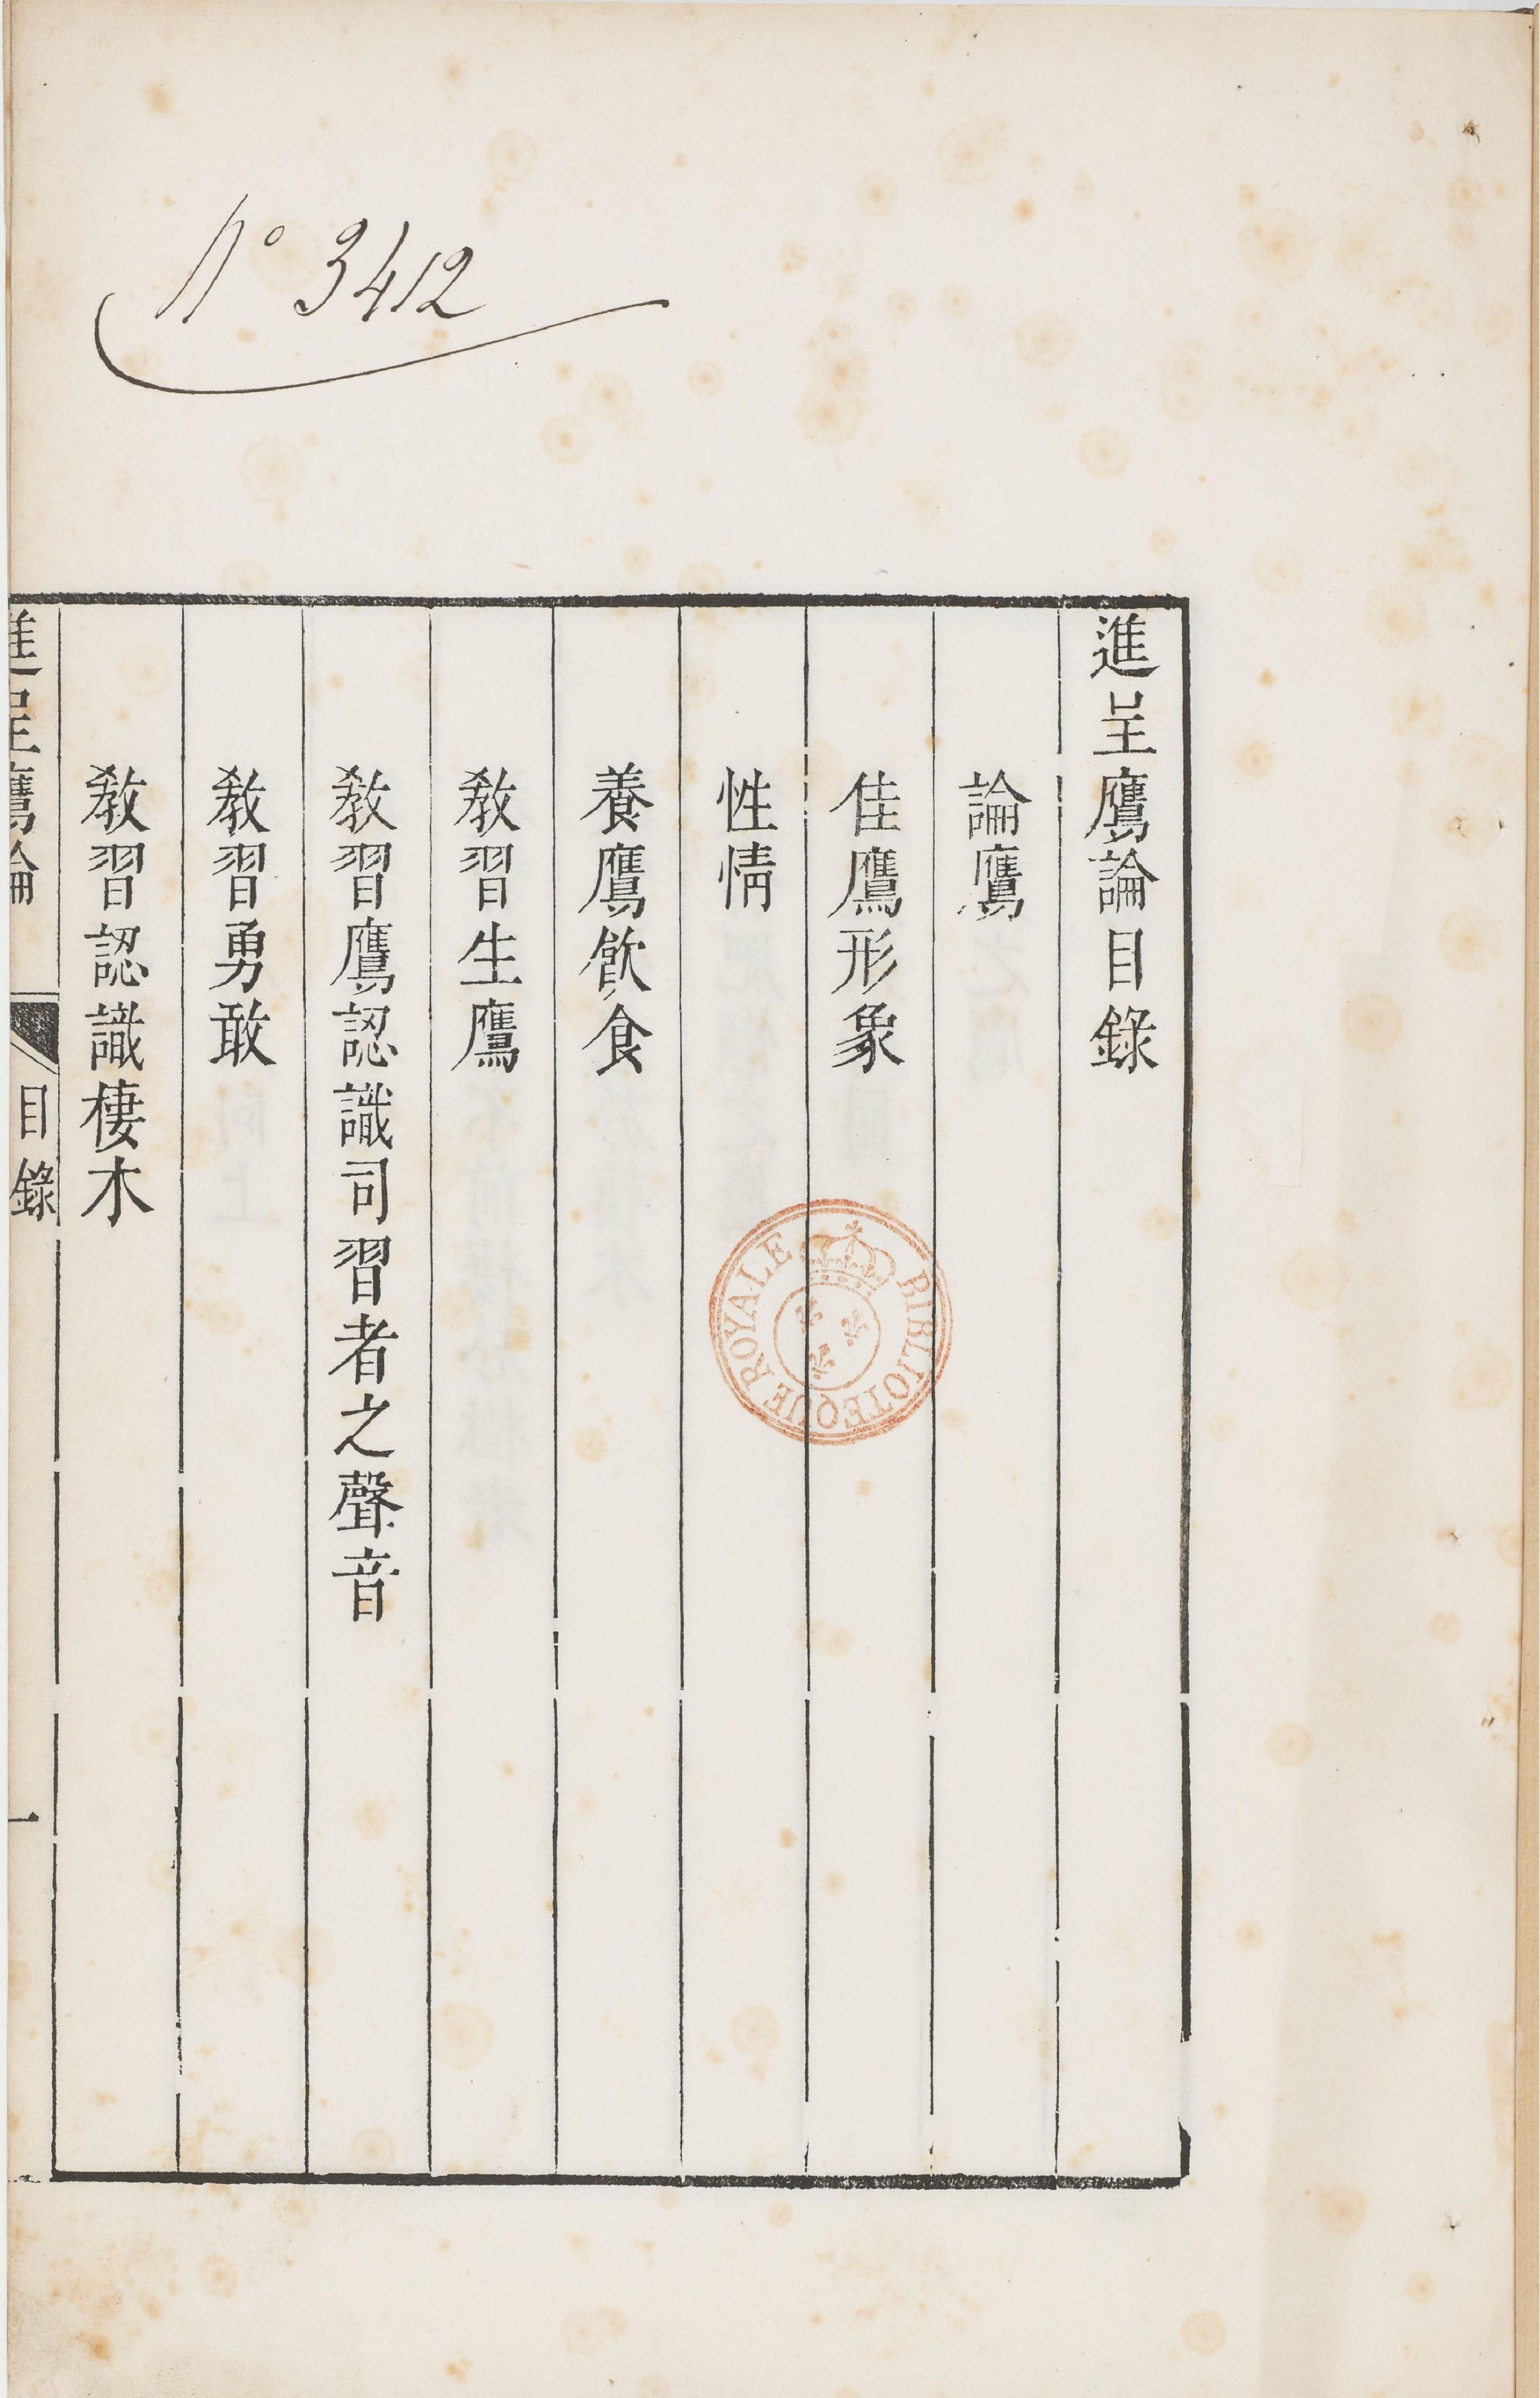 Nº 3412
進呈鷹論目錄
論鷹
佳鷹形象
性情
養鷹飲食
教習生鷹
教習鷹認識司習者之聲音
教習勇敢
教習認識棲木
進呈鷹論 目錄 一
BIBLIOTEQUE ROYALE